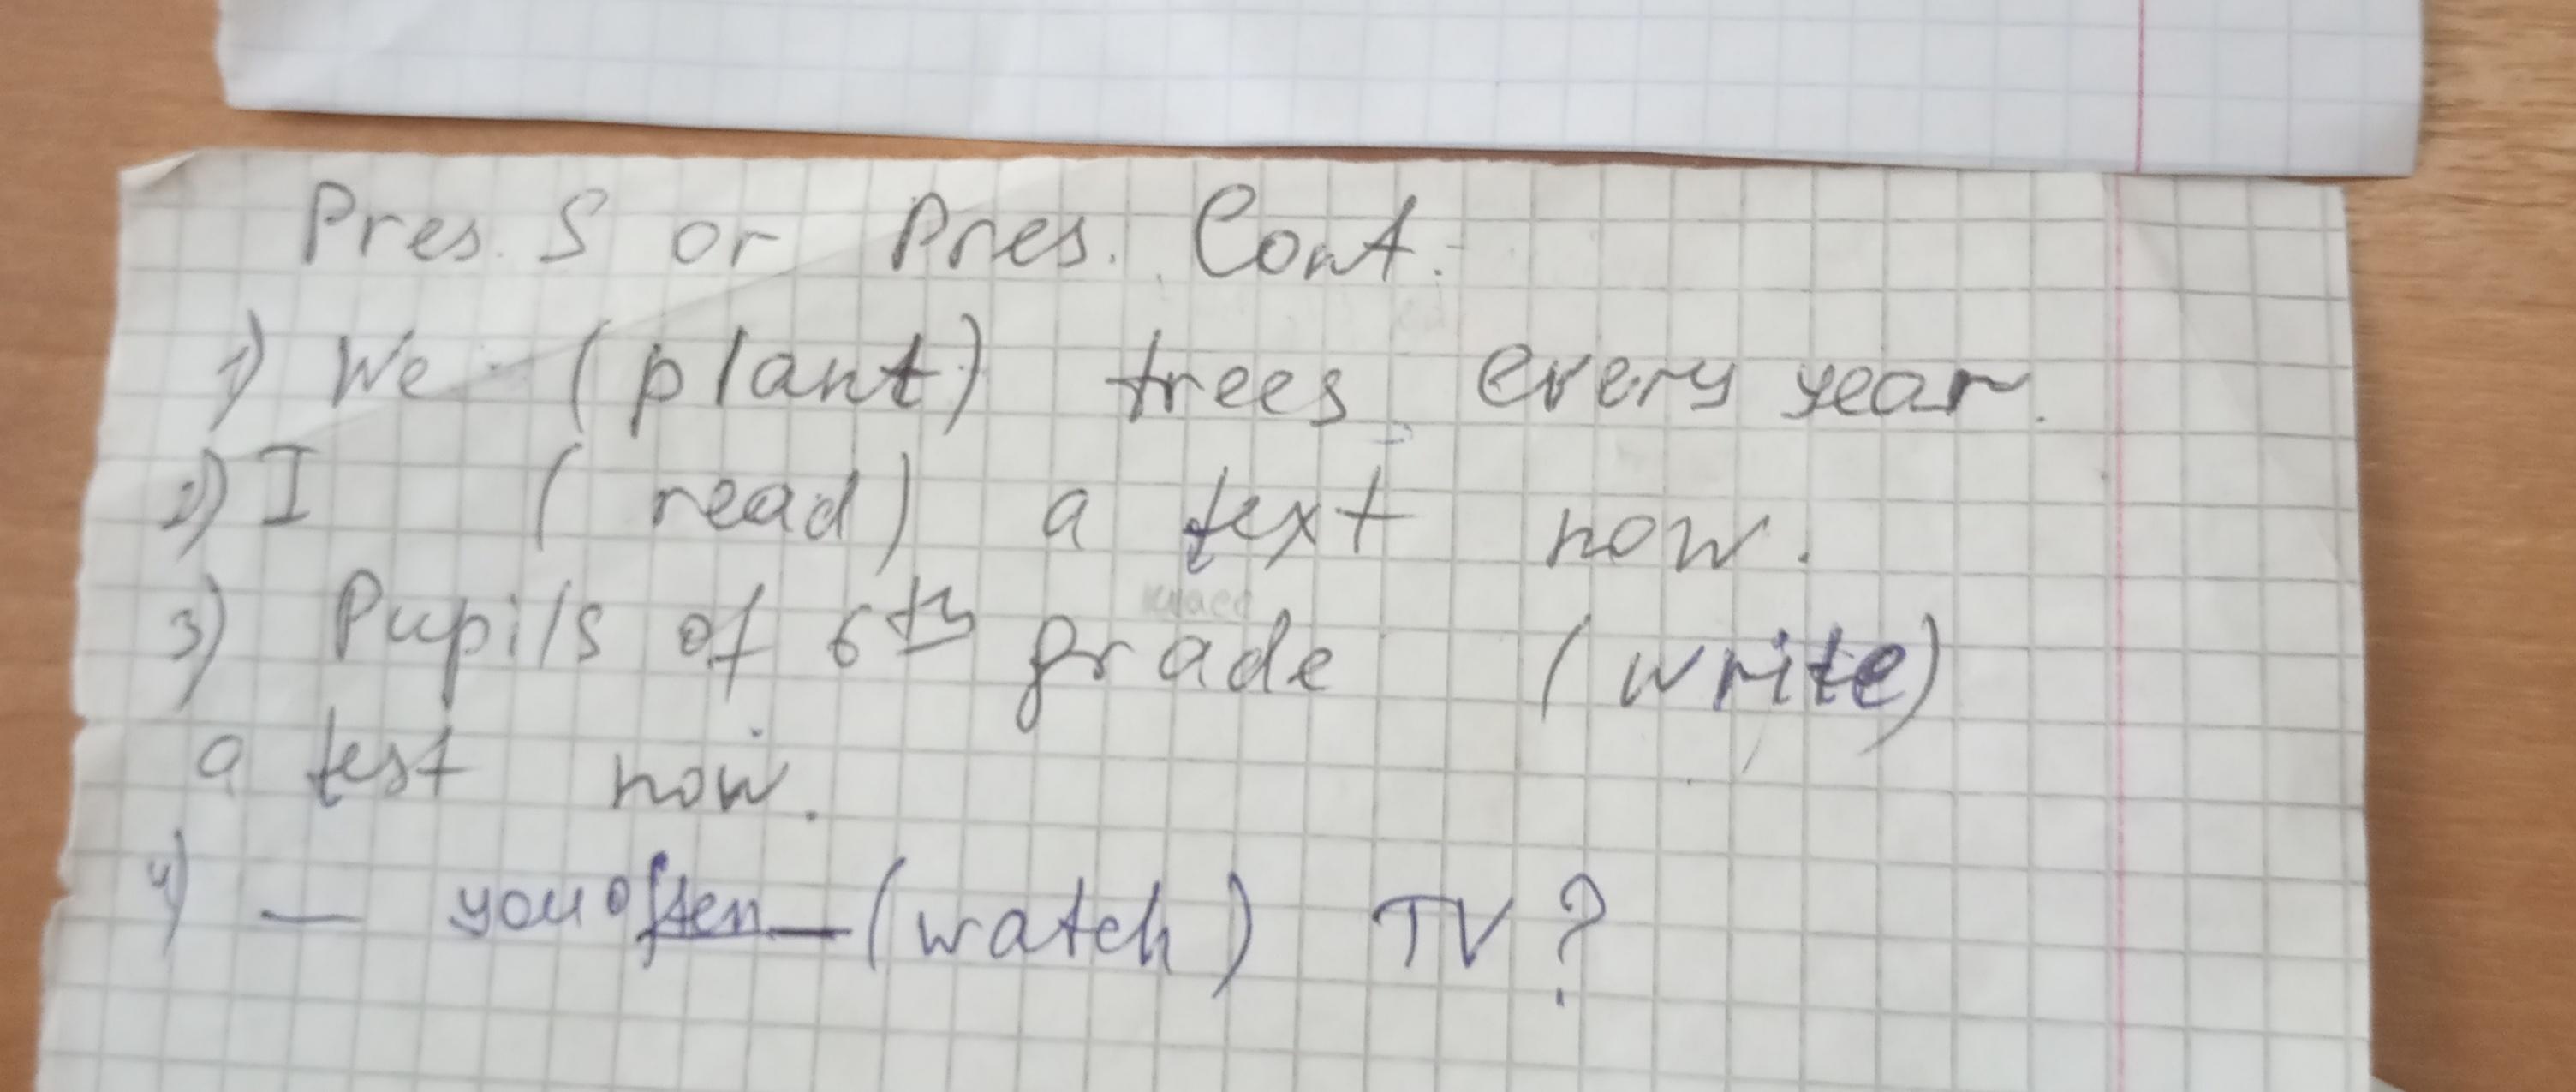 Pres. S or Pres. Cont.
1) We (plant) trees every year.
2) I (read) a text now.
3) Pupils of 6th grade (write)
a test now.
4) — you often — (watch) TV?